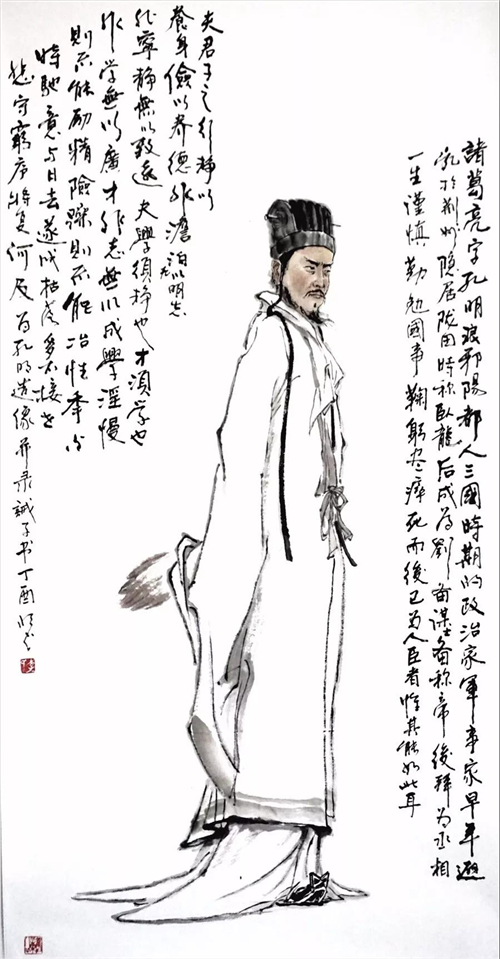 諸葛亮字孔明琅邪陽都人三國時期的政治家軍事家早年避
乱於荆州隐居陇田時称臥龍后成为劉备谋士备称帝後拜为丞相
一生谨慎勤勉國事鞠躬尽瘁死而後已为人臣者惟其能如此耳
夫君子之行静以
養身儉以养德非澹泊无以明志
非寧静無以致远夫學须静也才須学也
非学無以廣才非志無以成學淫慢
則不能励精險躁則不能冶性年与
時馳意与日去遂成枯落多不接世
悲守窮庐將复何及为孔明造像并录誡子书丁酉